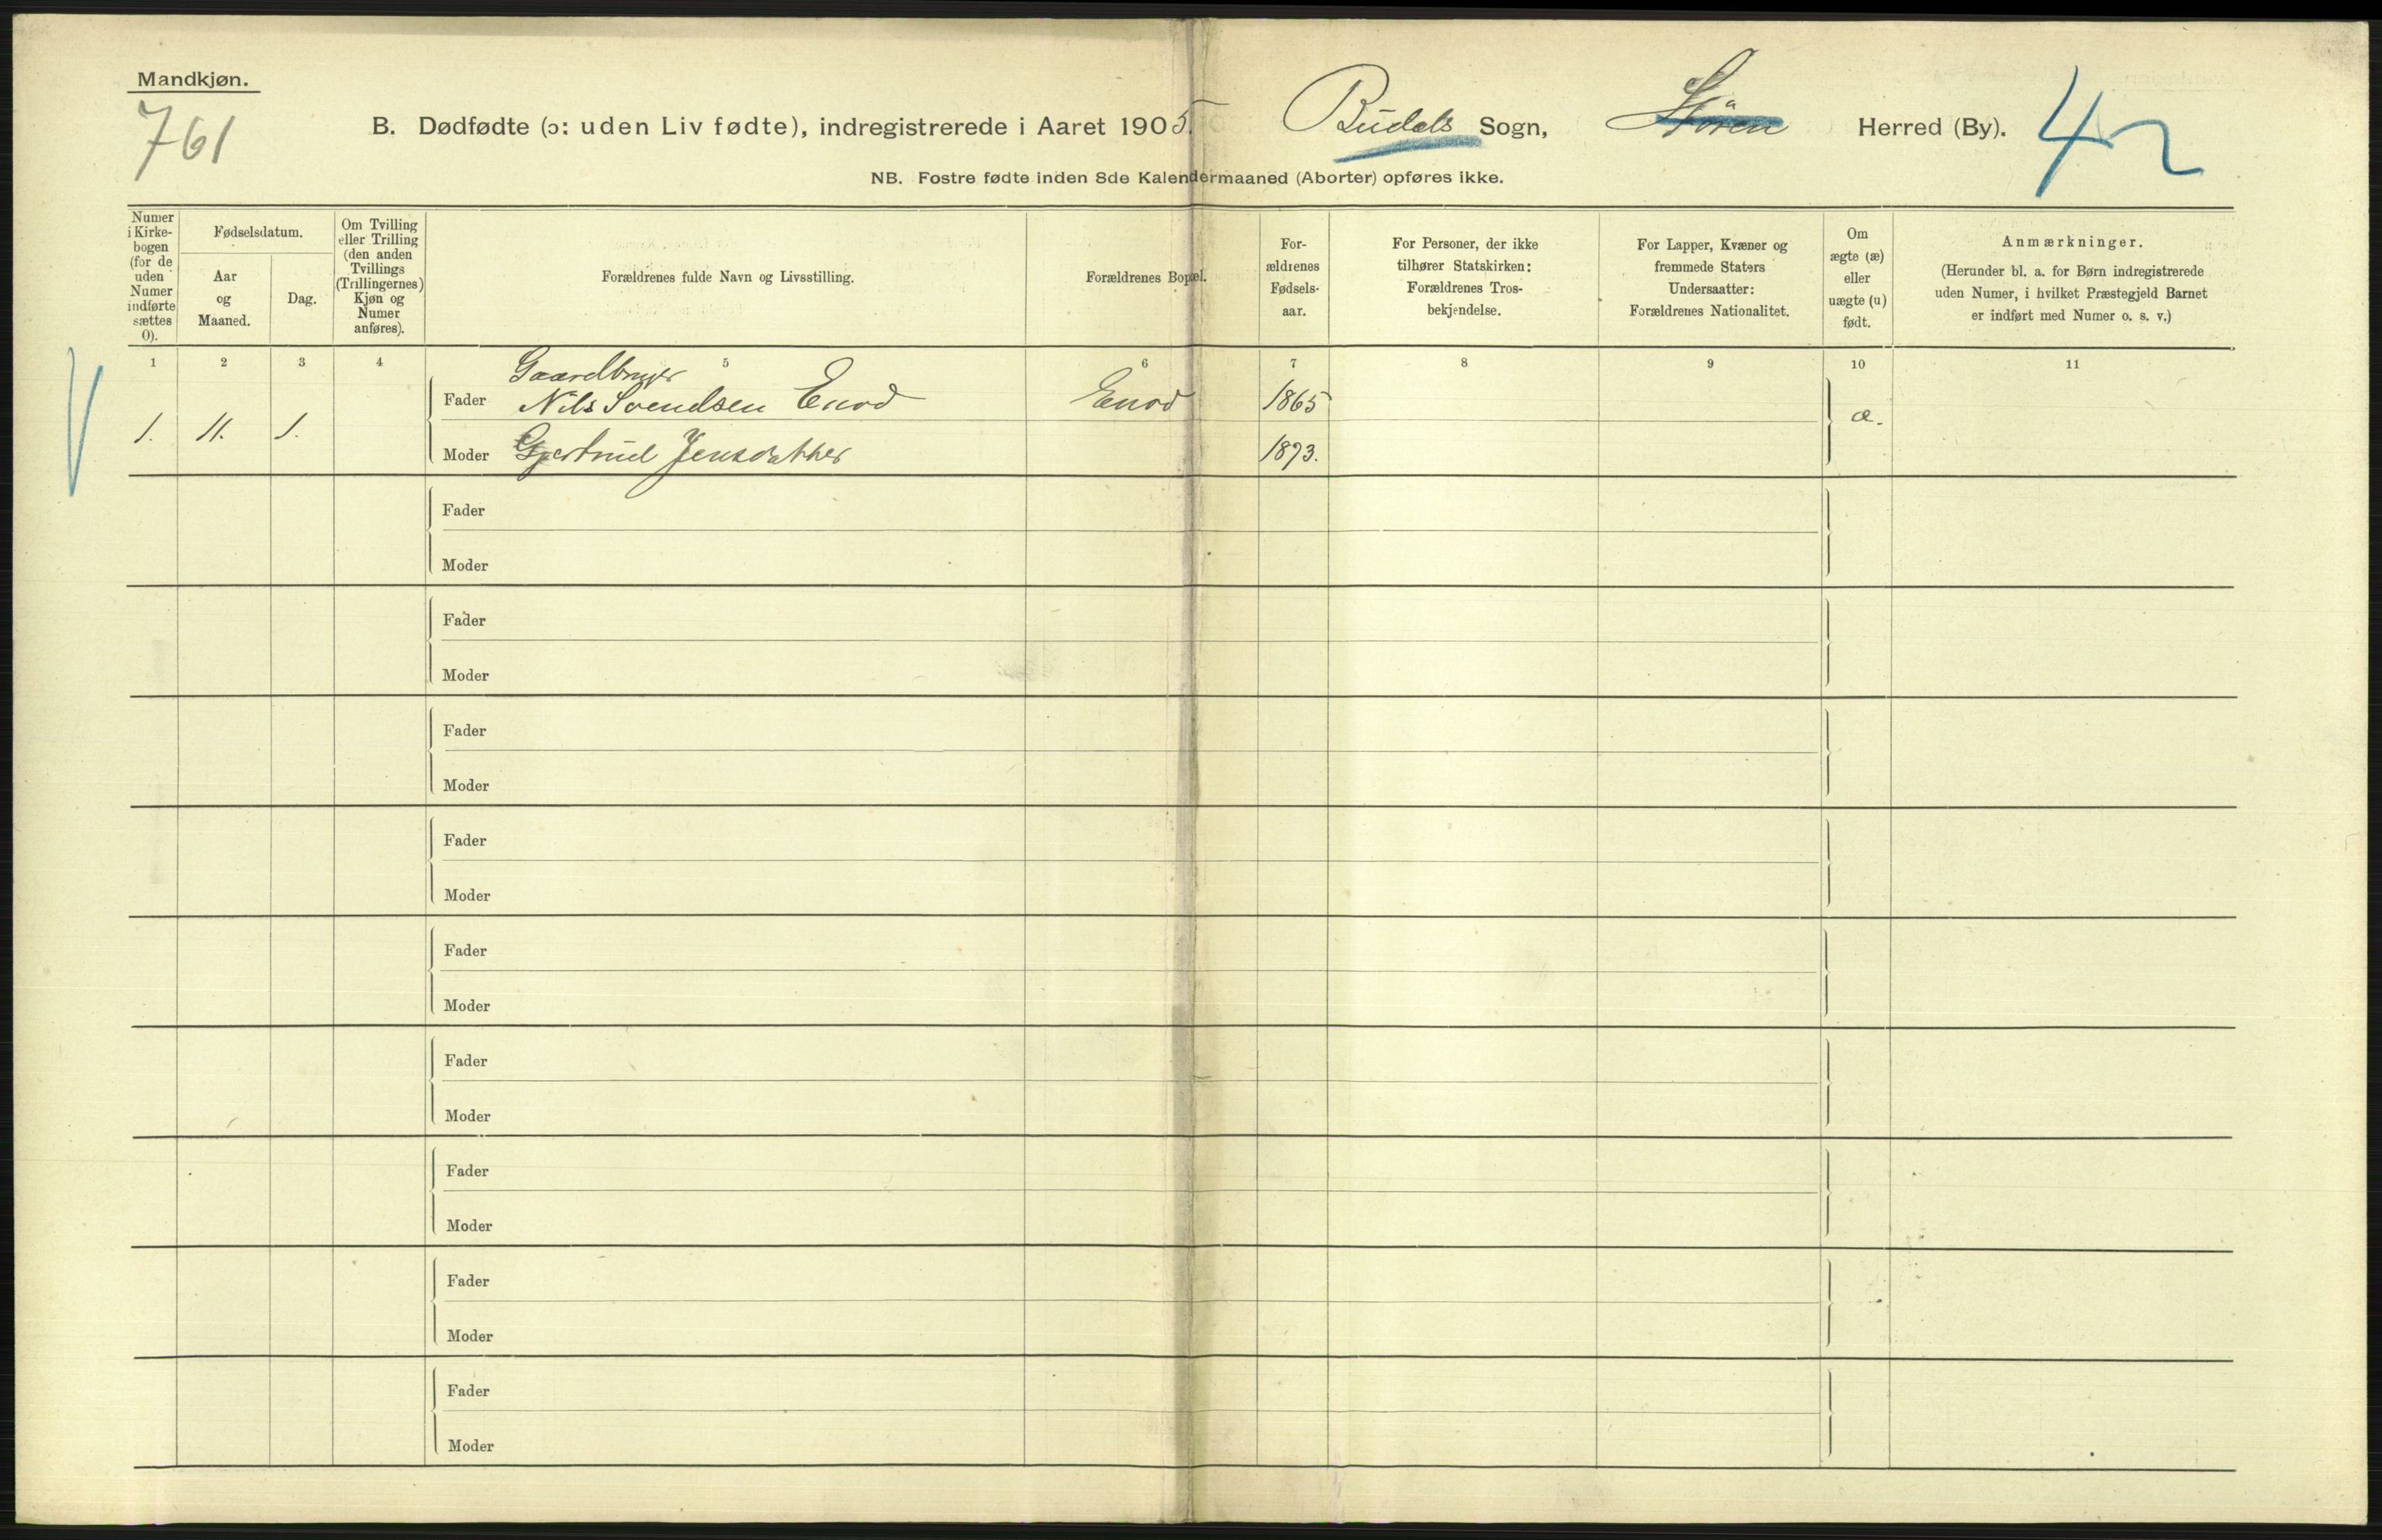 Mandkjøn.
761
B. Dødfødte (ɔ: uden Liv fødte), indregistrerede i Aaret 1905. Budals Sogn, Støren Herred (By). 42
NB. Fostre fødte inden 8de Kalendermaaned (Aborter) opføres ikke.
Numer i Kirkebogen (for de uden Numer indførte sættes 0).
Fødselsdatum.
Aar og Maaned.
Dag.
Om Tvilling eller Trilling (den anden Tvillings (Trillingernes) Kjøn og Numer anføres).
Forældrenes fulde Navn og Livsstilling.
Forældrenes Bopæl.
Forældrenes Fødselsaar.
For Personer, der ikke tilhører Statskirken: Forældrenes Trosbekjendelse.
For Lapper, Kvæner og fremmede Staters Undersaatter: Forældrenes Nationalitet.
Om ægte (æ) eller uægte (u) født.
Anmærkninger.
(Herunder bl. a. for Børn indregistrerede uden Numer, i hvilket Præstegjeld Barnet er indført med Numer o. s. v.)
1 2 3 4 5 6 7 8 9 10 11
Gaardbruger
Fader Nils Svendsen Enod Enod 1865
1. 11. 1. æ.
Moder Gjertrud Jensdatter 1873.
Fader
Moder
Fader
Moder
Fader
Moder
Fader
Moder
Fader
Moder
Fader
Moder
Fader
Moder
Fader
Moder
Fader
Moder